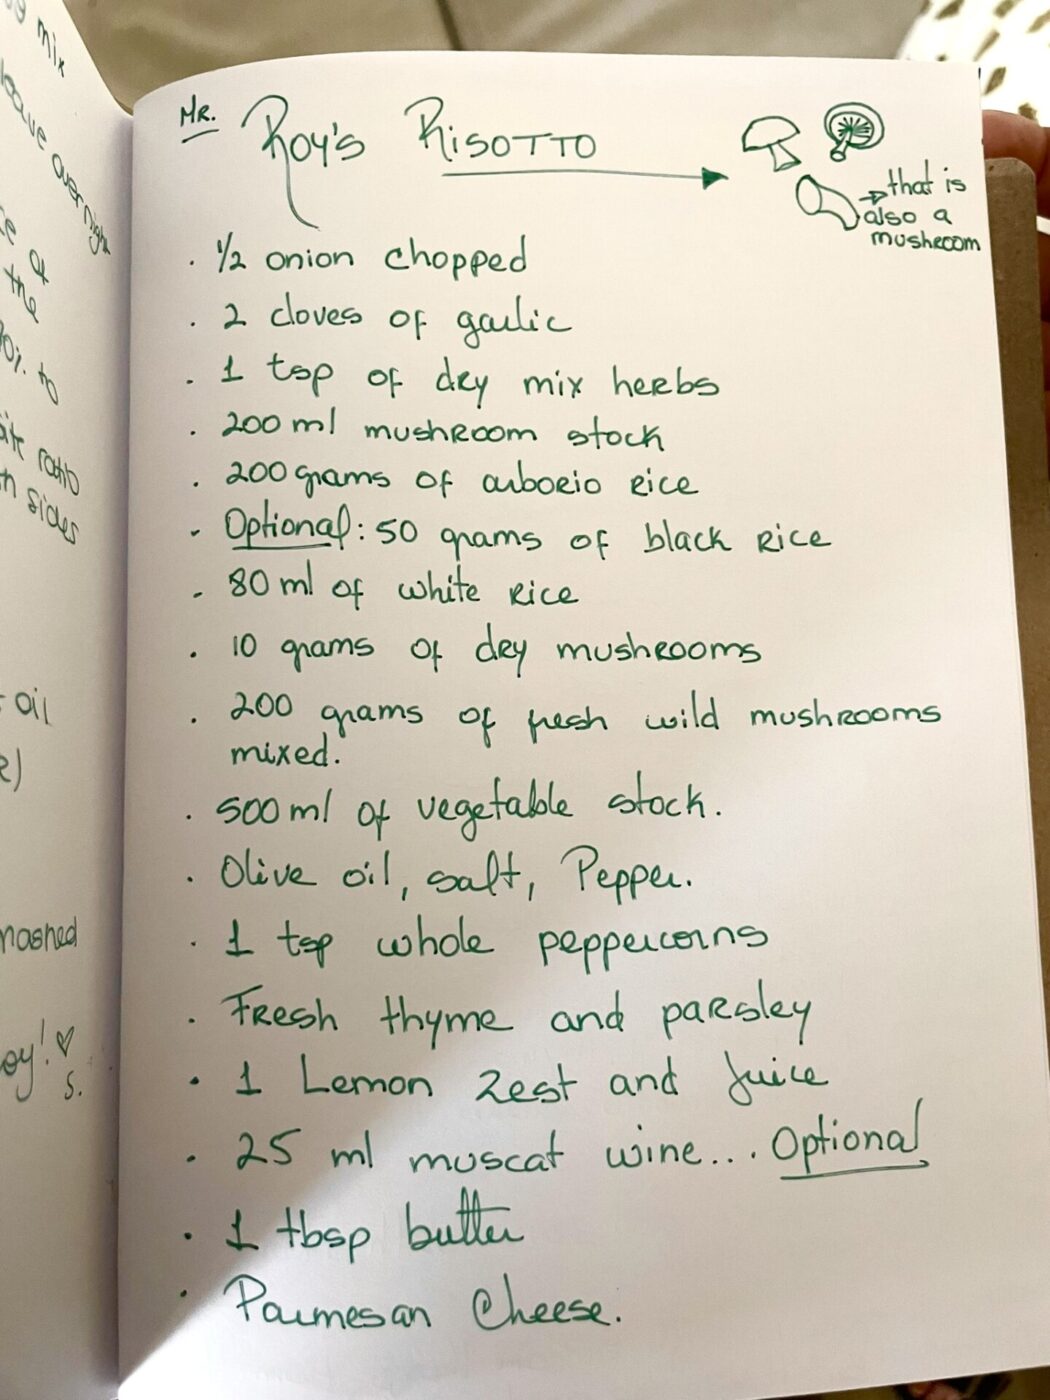 gg mix
leave overnight
ce of
the
to
ratio
sides
oil
mashed
oy! ♡
s.
MR. Roy's Risotto
that is
also a
mushroom
· 1/2 onion chopped
· 2 cloves of garlic
· 1 tsp of dry mix herbs
· 200 ml mushroom stock
· 200 grams of arborio rice
- Optional: 50 grams of black rice
- 80 ml of white rice
· 10 grams of dry mushrooms
· 200 grams of fresh wild mushrooms
mixed.
· 500 ml of vegetable stock.
· Olive oil, salt, Pepper.
· 1 tsp whole peppercorns
· Fresh thyme and parsley
· 1 Lemon Zest and Juice
· 25 ml muscat wine... Optional
· 1 tbsp butter
· Parmesan Cheese.